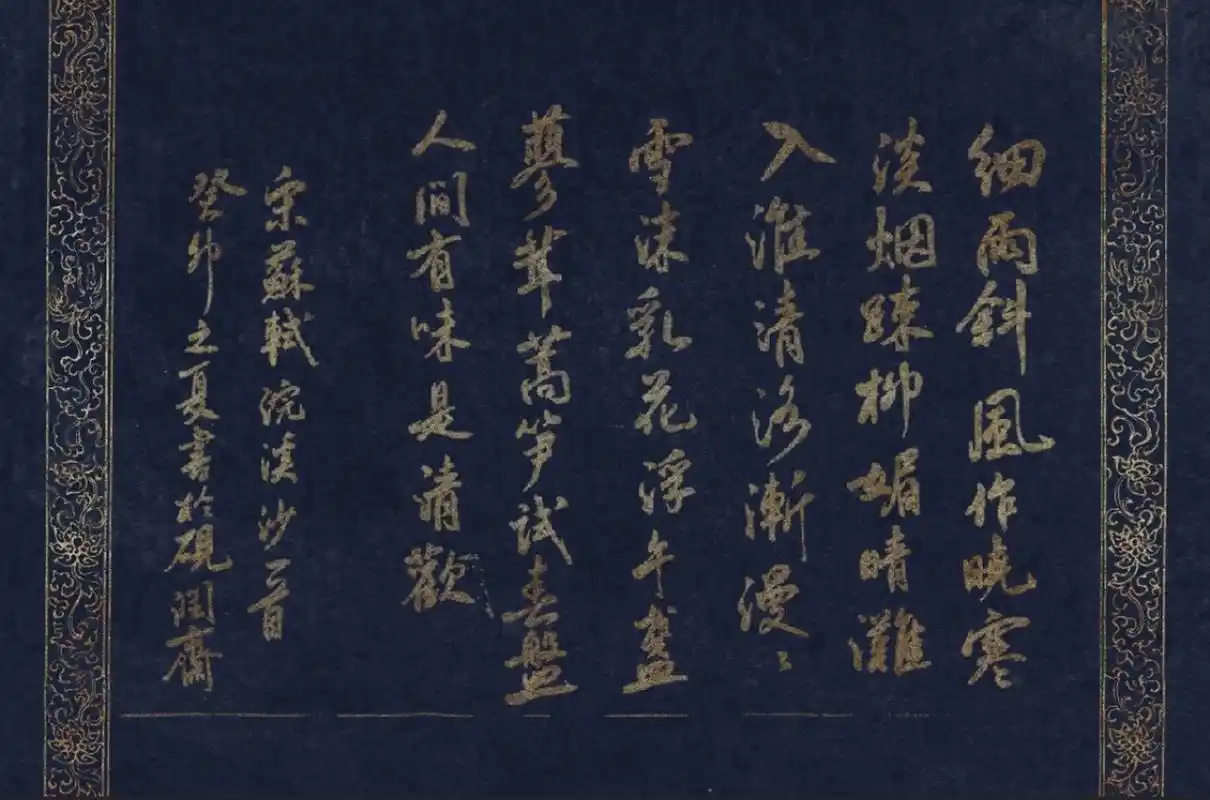 細雨斜風作曉寒
淡烟疎柳媚晴灘
入淮清洛漸漫〻
雪沫乳花浮午盞
蓼茸蒿笋試春盤
人間有味是清歡
宋蘇軾浣溪沙一首
癸卯之夏書於硯潤齋